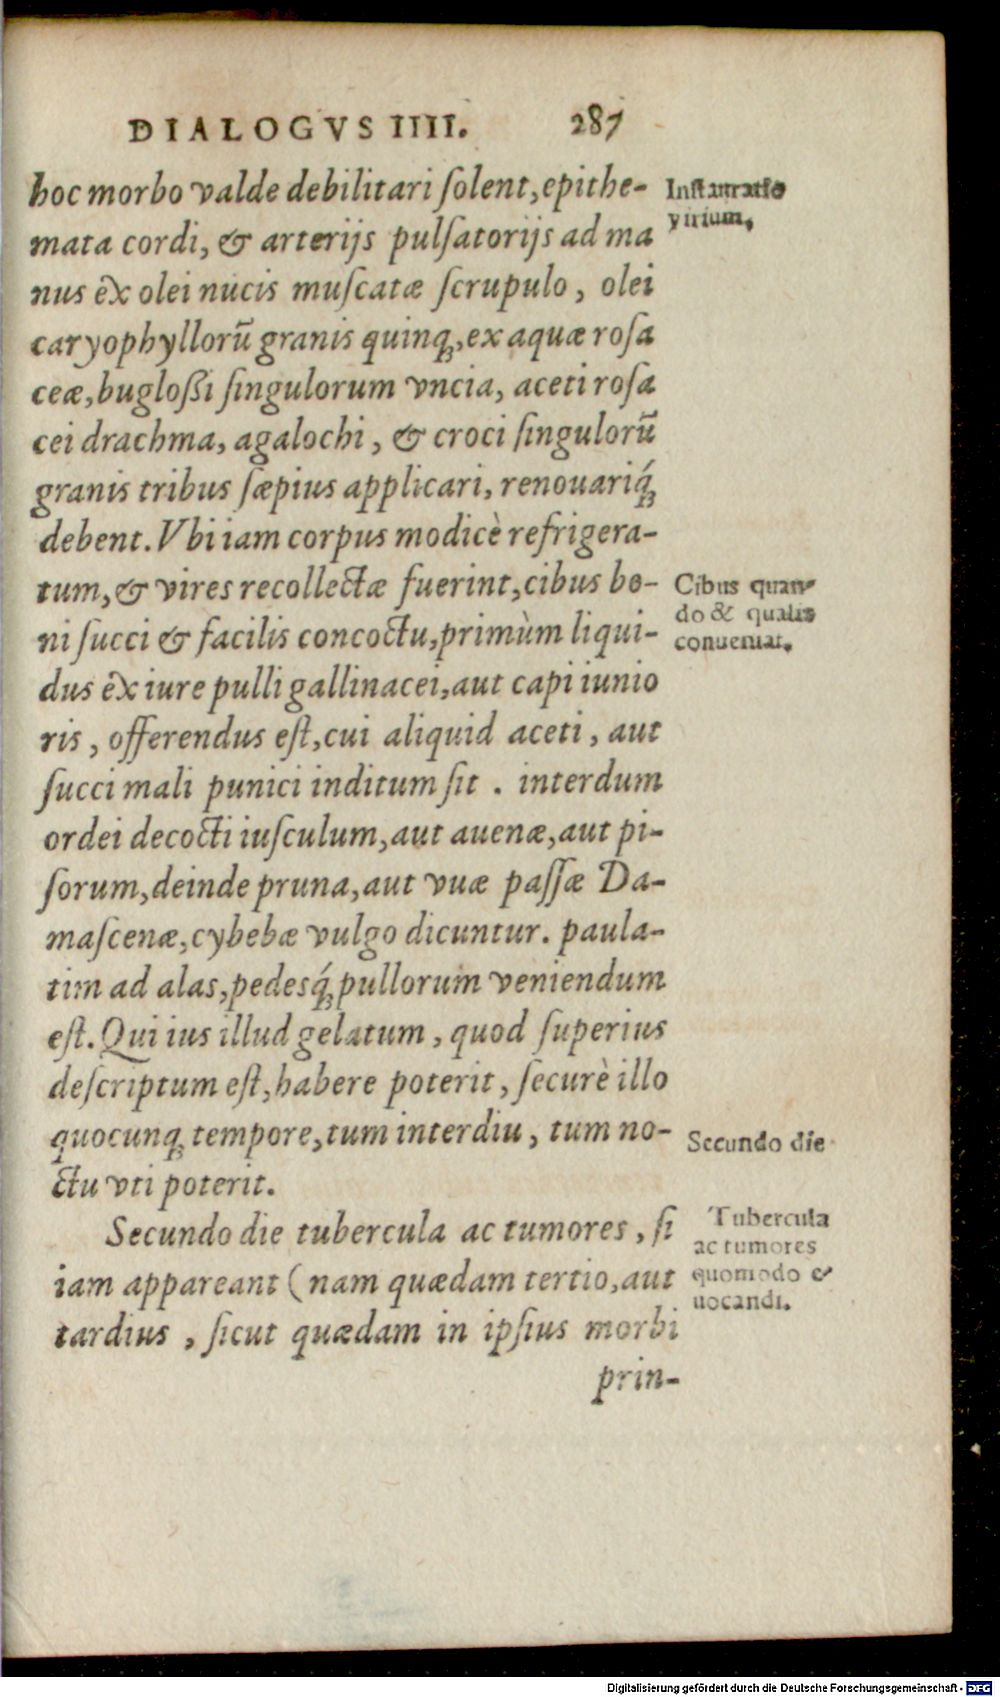 DIALOGVS IIII. 287
hoc morbo valde debilitari ſolent, epithe-
mata cordi, & arterijs pulſatorijs ad ma
nus ex olei nucis muſcatæ ſcrupulo, olei
caryophyllorũ granis quinq́;, ex aquæ roſa
ceæ, bugloßi ſingulorum vncia, aceti roſa
cei drachma, agalochi, & croci ſingulorũ
granis tribus ſæpius applicari, renouariq́;
debent. Vbi iam corpus modicè refrigera-
tum, & vires recollectæ fuerint, cibus bo-
ni ſucci & facilis concoctu, primùm liqui-
dus ex iure pulli gallinacei, aut capi iunio
ris, offerendus eſt, cui aliquid aceti, aut
ſucci mali punici inditum ſit. interdum
ordei decocti iuſculum, aut auenæ, aut pi-
ſorum, deinde pruna, aut vuæ paſſæ Da-
maſcenæ, cybebæ vulgo dicuntur. paula-
tim ad alas, pedesq́; pullorum veniendum
eſt. Qui ius illud gelatum, quod ſuperius
deſcriptum eſt, habere poterit, ſecurè illo
quocunq; tempore, tum interdiu, tum no-
ctu vti poterit.
Secundo die tubercula ac tumores, ſi
iam appareant (nam quædam tertio, aut
tardius, ſicut quædam in ipſius morbi
prin-
Inſtauratio
virium.
Cibus quan-
do & qualis
conueniat.
Secundo die
Tubercula
ac tumores
quomodo e-
uocandi.
Digitalisierung gefördert durch die Deutsche Forschungsgemeinschaft - DFG